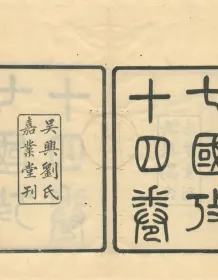 七國攷
十四卷
吳興劉氏
嘉業堂刊